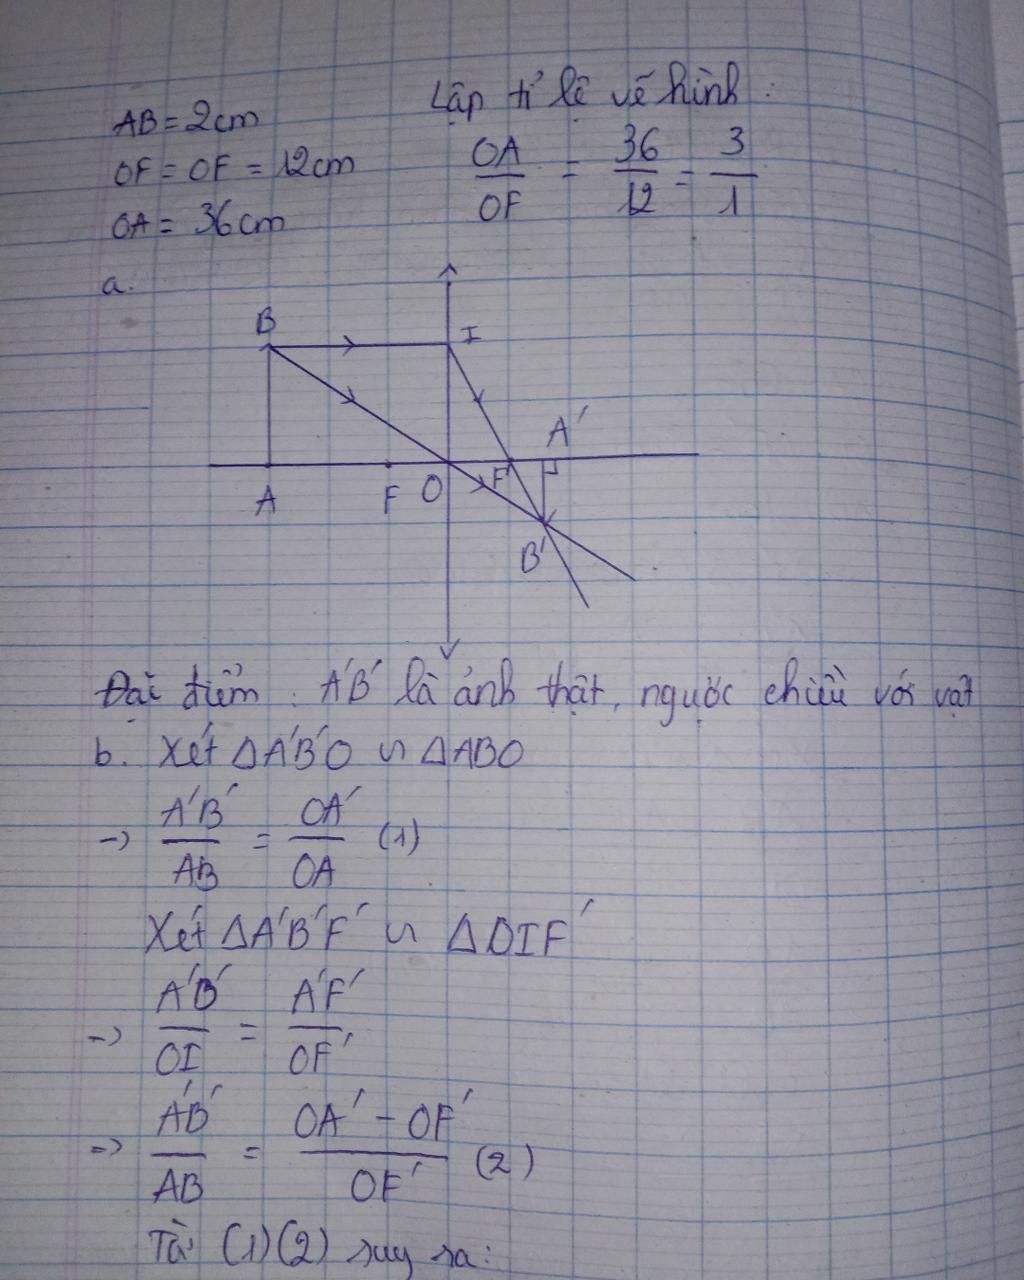 Lập tỉ lệ vẽ hình :
AB = 2cm
OF = OF = 12cm
OA = 36cm
OA / OF = 36 / 12 = 3 / 1
a.
B
I
A'
A
F
O
F'
B'
Đặc điểm : A'B' là ảnh thật, ngược chiều với vật
b. Xét ΔA'B'O ∽ ΔABO
-> A'B' / AB = OA' / OA (1)
Xét ΔA'B'F' ∽ ΔOIF'
-> A'B' / OI = A'F' / OF'
=> A'B' / AB = OA' - OF' / OF' (2)
Từ (1)(2) suy ra :